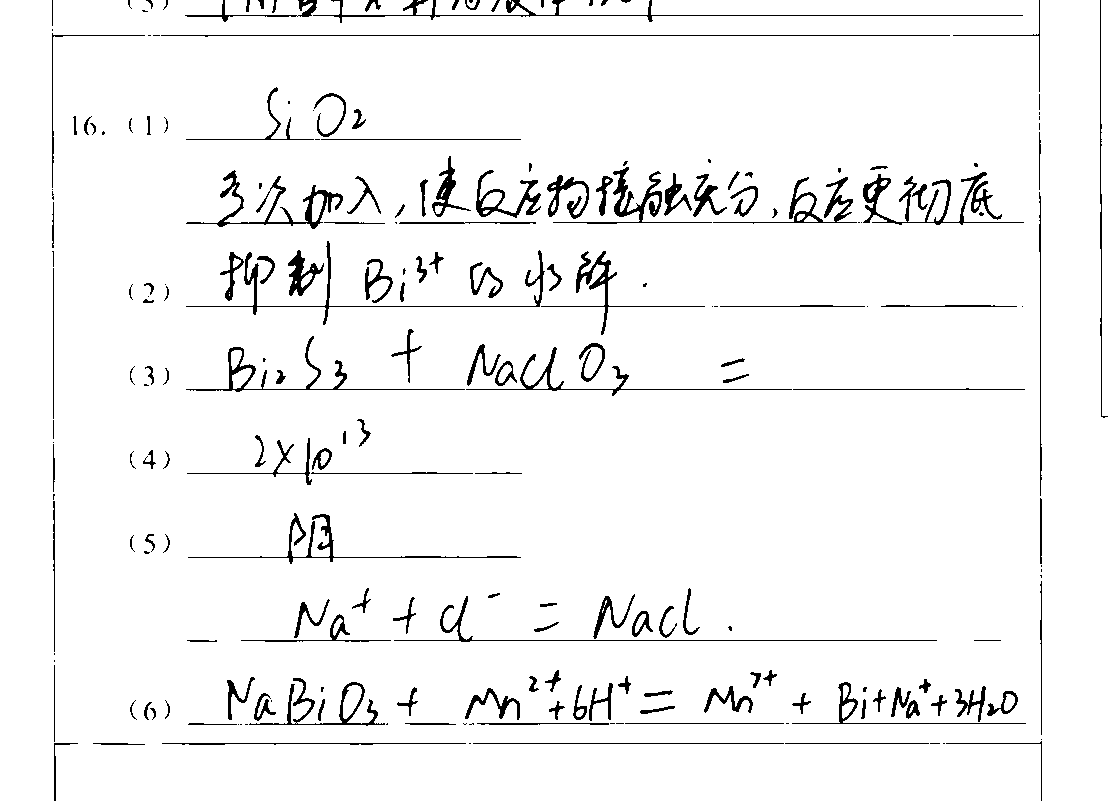 (3)
16. (1) SiO₂
多次加入,使反应物接触充分,反应更彻底
(2) 抑制 Bi³⁺ 的水解.
(3) Bi₂S₃ + NaClO₃ =
(4) 2×10¹³
(5) 阴
Na⁺ + Cl⁻ = NaCl.
(6) NaBiO₃ + Mn²⁺+6H⁺ = Mn⁷⁺ + Bi+Na⁺+3H₂O